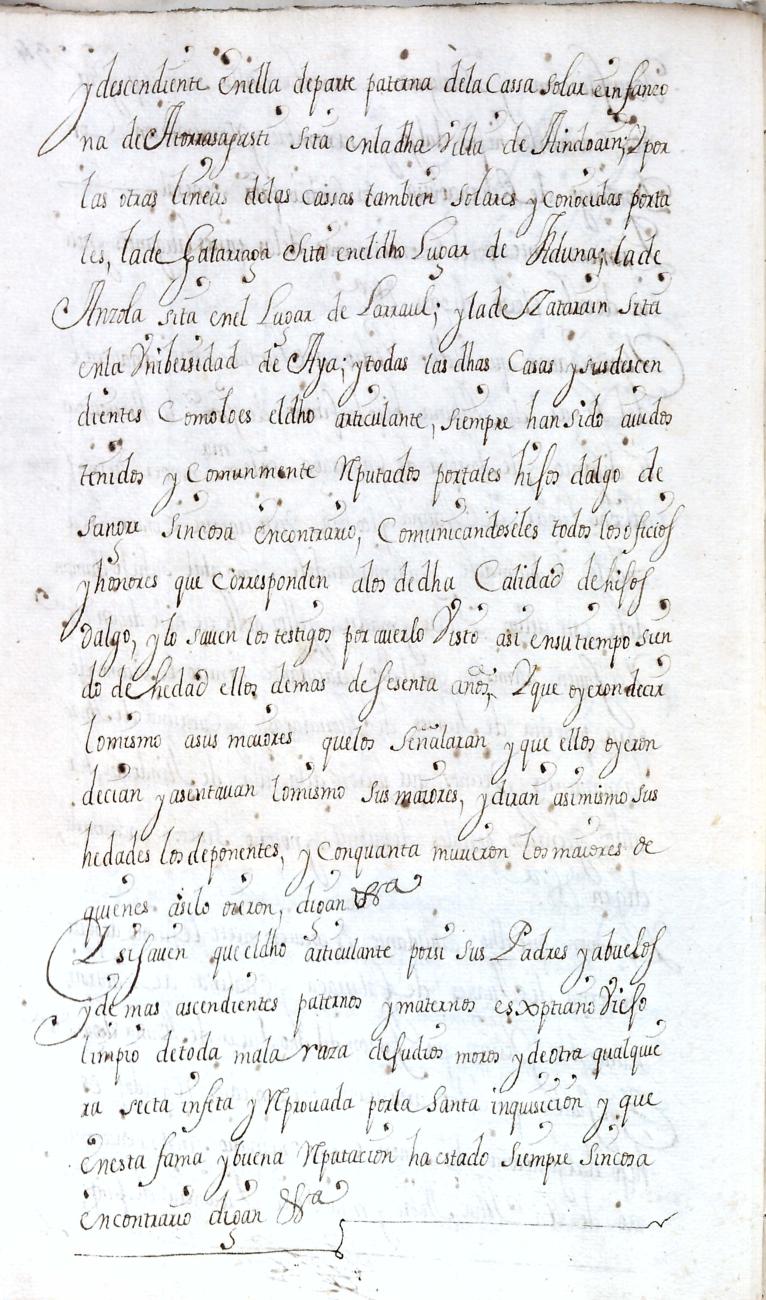 y descendiente en ella de parte paterna dela Cassa solar e infanzo
na de Atorrasagasti sita en la dha villa de Aindoain; Y por
las otras lineas delas cassas tambien solares y conocidas por ta
les, la de Galarraga sita en el dho Lugar de Aduna; la de
Anzola sita en el Lugar de Larraul; y la de Zatarain sita
en la Vnibersidad de Aya; y todas las dhas Casas y sus descen
dientes Como lo es el dho articulante, siempre han sido auidos
tenidos y Comunmente Rputados por tales hijos dalgo de
sangre sin cosa en contrario, Comunicandoseles todos los oficios
y honores que Corresponden a los de dha Calidad de hijos
dalgo, y lo sauen los testigos por auerlo Visto asi en su tiempo sien
do de hedad ellos de mas de sesenta años, Y que oyeron decir
lo mismo a sus maiores que los señalaran y que ellos oyeron
decian y asentauan lo mismo sus maiores, y diran asimismo sus
hedades los deponentes, y Con quanta murieron los maiores de
quienes asi lo oieron, digan &ra
Y si sauen que el dho articulante por si sus Padres y abuelos
y demas ascendientes paternos y maternos es xptiano Viejo
limpio de toda mala raza de judios moros y de otra qualquie
ra secta infeta y Rprouada por la Santa inquisicion y que
en esta fama y buena Rputacion ha estado siempre sin cosa
en contrario digan &ra